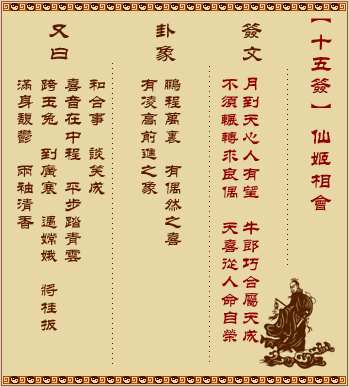 【十五簽】 仙姬相會
簽文
月到天心人有望 牛郎巧合屬天成
不須輾轉求良偶 天喜從人命自榮
卦象
鵬程萬裏 有偶然之喜
有凌高前進之象
又曰
和合事 談笑成
喜音在中程 平步踏青雲
跨玉兔 到廣寒 遇嫦娥 將桂扳
滿身馥鬱 兩袖清香